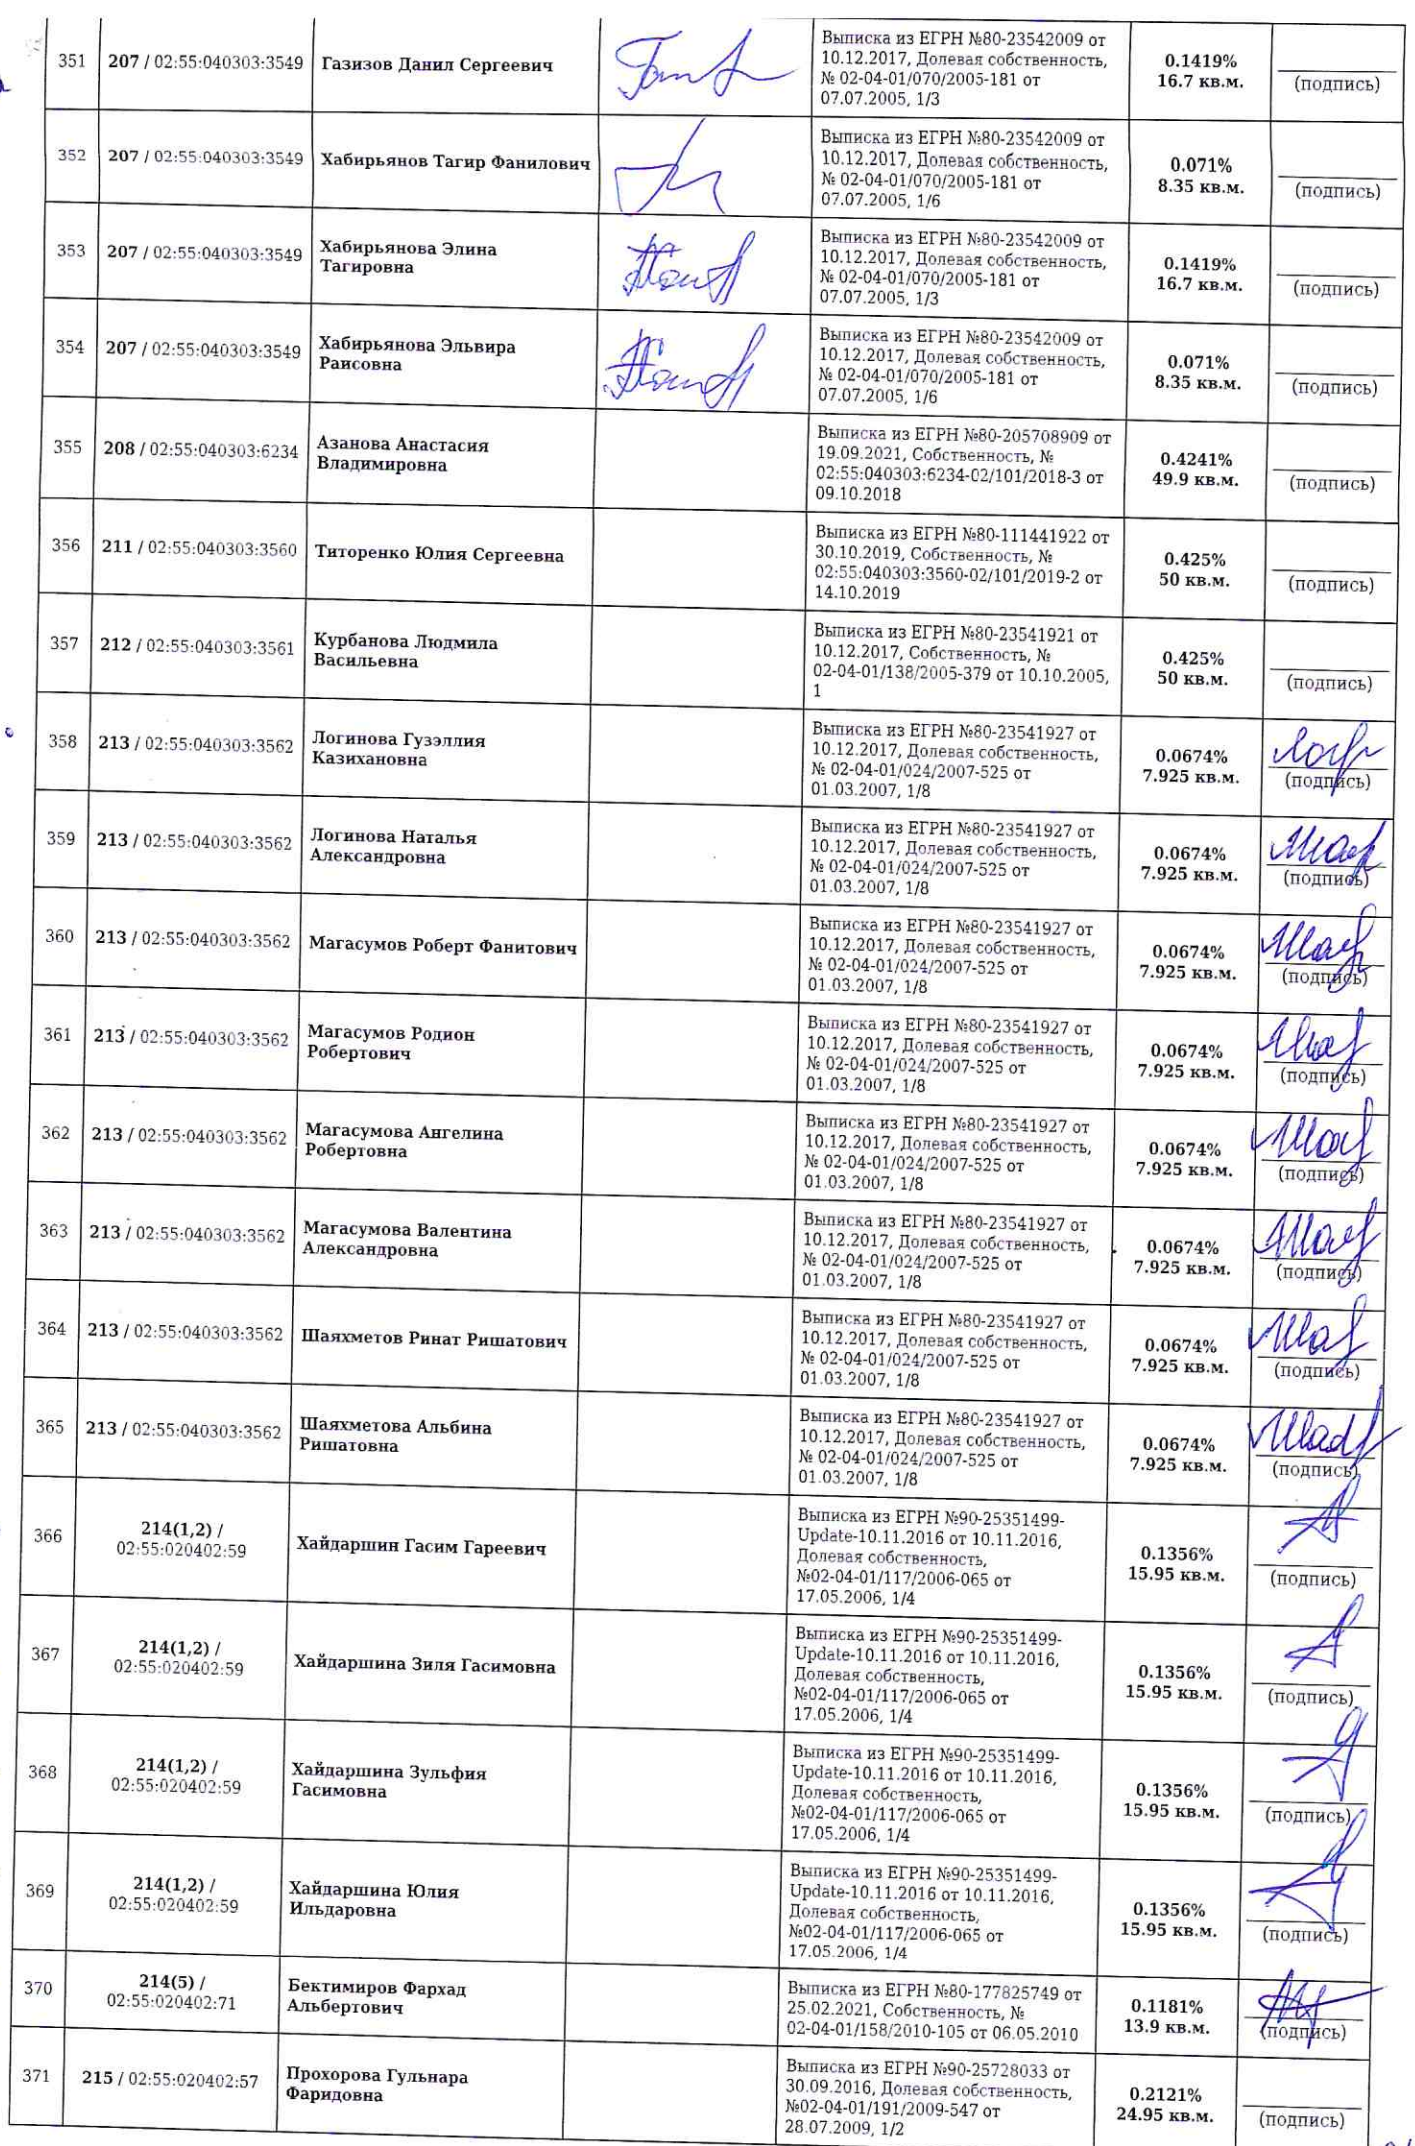 351
207 / 02:55:040303:3549
Газизов Данил Сергеевич
Выписка из ЕГРН №80-23542009 от
10.12.2017, Долевая собственность,
№ 02-04-01/070/2005-181 от
07.07.2005, 1/3
0.1419%
16.7 кв.м.
(подпись)
352
207 / 02:55:040303:3549
Хабирьянов Тагир Фанилович
Выписка из ЕГРН №80-23542009 от
10.12.2017, Долевая собственность,
№ 02-04-01/070/2005-181 от
07.07.2005, 1/6
0.071%
8.35 кв.м.
(подпись)
353
207 / 02:55:040303:3549
Хабирьянова Элина
Тагировна
Выписка из ЕГРН №80-23542009 от
10.12.2017, Долевая собственность,
№ 02-04-01/070/2005-181 от
07.07.2005, 1/3
0.1419%
16.7 кв.м.
(подпись)
354
207 / 02:55:040303:3549
Хабирьянова Эльвира
Раисовна
Выписка из ЕГРН №80-23542009 от
10.12.2017, Долевая собственность,
№ 02-04-01/070/2005-181 от
07.07.2005, 1/6
0.071%
8.35 кв.м.
(подпись)
355
208 / 02:55:040303:6234
Азанова Анастасия
Владимировна
Выписка из ЕГРН №80-205708909 от
19.09.2021, Собственность, №
02:55:040303:6234-02/101/2018-3 от
09.10.2018
0.4241%
49.9 кв.м.
(подпись)
356
211 / 02:55:040303:3560
Титоренко Юлия Сергеевна
Выписка из ЕГРН №80-111441922 от
30.10.2019, Собственность, №
02:55:040303:3560-02/101/2019-2 от
14.10.2019
0.425%
50 кв.м.
(подпись)
357
212 / 02:55:040303:3561
Курбанова Людмила
Васильевна
Выписка из ЕГРН №80-23541921 от
10.12.2017, Собственность, №
02-04-01/138/2005-379 от 10.10.2005,
1
0.425%
50 кв.м.
(подпись)
358
213 / 02:55:040303:3562
Логинова Гузэллия
Казихановна
Выписка из ЕГРН №80-23541927 от
10.12.2017, Долевая собственность,
№ 02-04-01/024/2007-525 от
01.03.2007, 1/8
0.0674%
7.925 кв.м.
(подпись)
359
213 / 02:55:040303:3562
Логинова Наталья
Александровна
Выписка из ЕГРН №80-23541927 от
10.12.2017, Долевая собственность,
№ 02-04-01/024/2007-525 от
01.03.2007, 1/8
0.0674%
7.925 кв.м.
(подпись)
360
213 / 02:55:040303:3562
Магасумов Роберт Фанитович
Выписка из ЕГРН №80-23541927 от
10.12.2017, Долевая собственность,
№ 02-04-01/024/2007-525 от
01.03.2007, 1/8
0.0674%
7.925 кв.м.
(подпись)
361
213 / 02:55:040303:3562
Магасумов Родион
Робертович
Выписка из ЕГРН №80-23541927 от
10.12.2017, Долевая собственность,
№ 02-04-01/024/2007-525 от
01.03.2007, 1/8
0.0674%
7.925 кв.м.
(подпись)
362
213 / 02:55:040303:3562
Магасумова Ангелина
Робертовна
Выписка из ЕГРН №80-23541927 от
10.12.2017, Долевая собственность,
№ 02-04-01/024/2007-525 от
01.03.2007, 1/8
0.0674%
7.925 кв.м.
(подпись)
363
213 / 02:55:040303:3562
Магасумова Валентина
Александровна
Выписка из ЕГРН №80-23541927 от
10.12.2017, Долевая собственность,
№ 02-04-01/024/2007-525 от
01.03.2007, 1/8
0.0674%
7.925 кв.м.
(подпись)
364
213 / 02:55:040303:3562
Шаяхметов Ринат Ришатович
Выписка из ЕГРН №80-23541927 от
10.12.2017, Долевая собственность,
№ 02-04-01/024/2007-525 от
01.03.2007, 1/8
0.0674%
7.925 кв.м.
(подпись)
365
213 / 02:55:040303:3562
Шаяхметова Альбина
Ришатовна
Выписка из ЕГРН №80-23541927 от
10.12.2017, Долевая собственность,
№ 02-04-01/024/2007-525 от
01.03.2007, 1/8
0.0674%
7.925 кв.м.
(подпись)
366
214(1,2) /
02:55:020402:59
Хайдаршин Гасим Гареевич
Выписка из ЕГРН №90-25351499-
Update-10.11.2016 от 10.11.2016,
Долевая собственность,
№02-04-01/117/2006-065 от
17.05.2006, 1/4
0.1356%
15.95 кв.м.
(подпись)
367
214(1,2) /
02:55:020402:59
Хайдаршина Зиля Гасимовна
Выписка из ЕГРН №90-25351499-
Update-10.11.2016 от 10.11.2016,
Долевая собственность,
№02-04-01/117/2006-065 от
17.05.2006, 1/4
0.1356%
15.95 кв.м.
(подпись)
368
214(1,2) /
02:55:020402:59
Хайдаршина Зульфия
Гасимовна
Выписка из ЕГРН №90-25351499-
Update-10.11.2016 от 10.11.2016,
Долевая собственность,
№02-04-01/117/2006-065 от
17.05.2006, 1/4
0.1356%
15.95 кв.м.
(подпись)
369
214(1,2) /
02:55:020402:59
Хайдаршина Юлия
Ильдаровна
Выписка из ЕГРН №90-25351499-
Update-10.11.2016 от 10.11.2016,
Долевая собственность,
№02-04-01/117/2006-065 от
17.05.2006, 1/4
0.1356%
15.95 кв.м.
(подпись)
370
214(5) /
02:55:020402:71
Бектимиров Фархад
Альбертович
Выписка из ЕГРН №80-177825749 от
25.02.2021, Собственность, №
02-04-01/158/2010-105 от 06.05.2010
0.1181%
13.9 кв.м.
(подпись)
371
215 / 02:55:020402:57
Прохорова Гульнара
Фаридовна
Выписка из ЕГРН №90-25728033 от
30.09.2016, Долевая собственность,
№02-04-01/191/2009-547 от
28.07.2009, 1/2
0.2121%
24.95 кв.м.
(подпись)